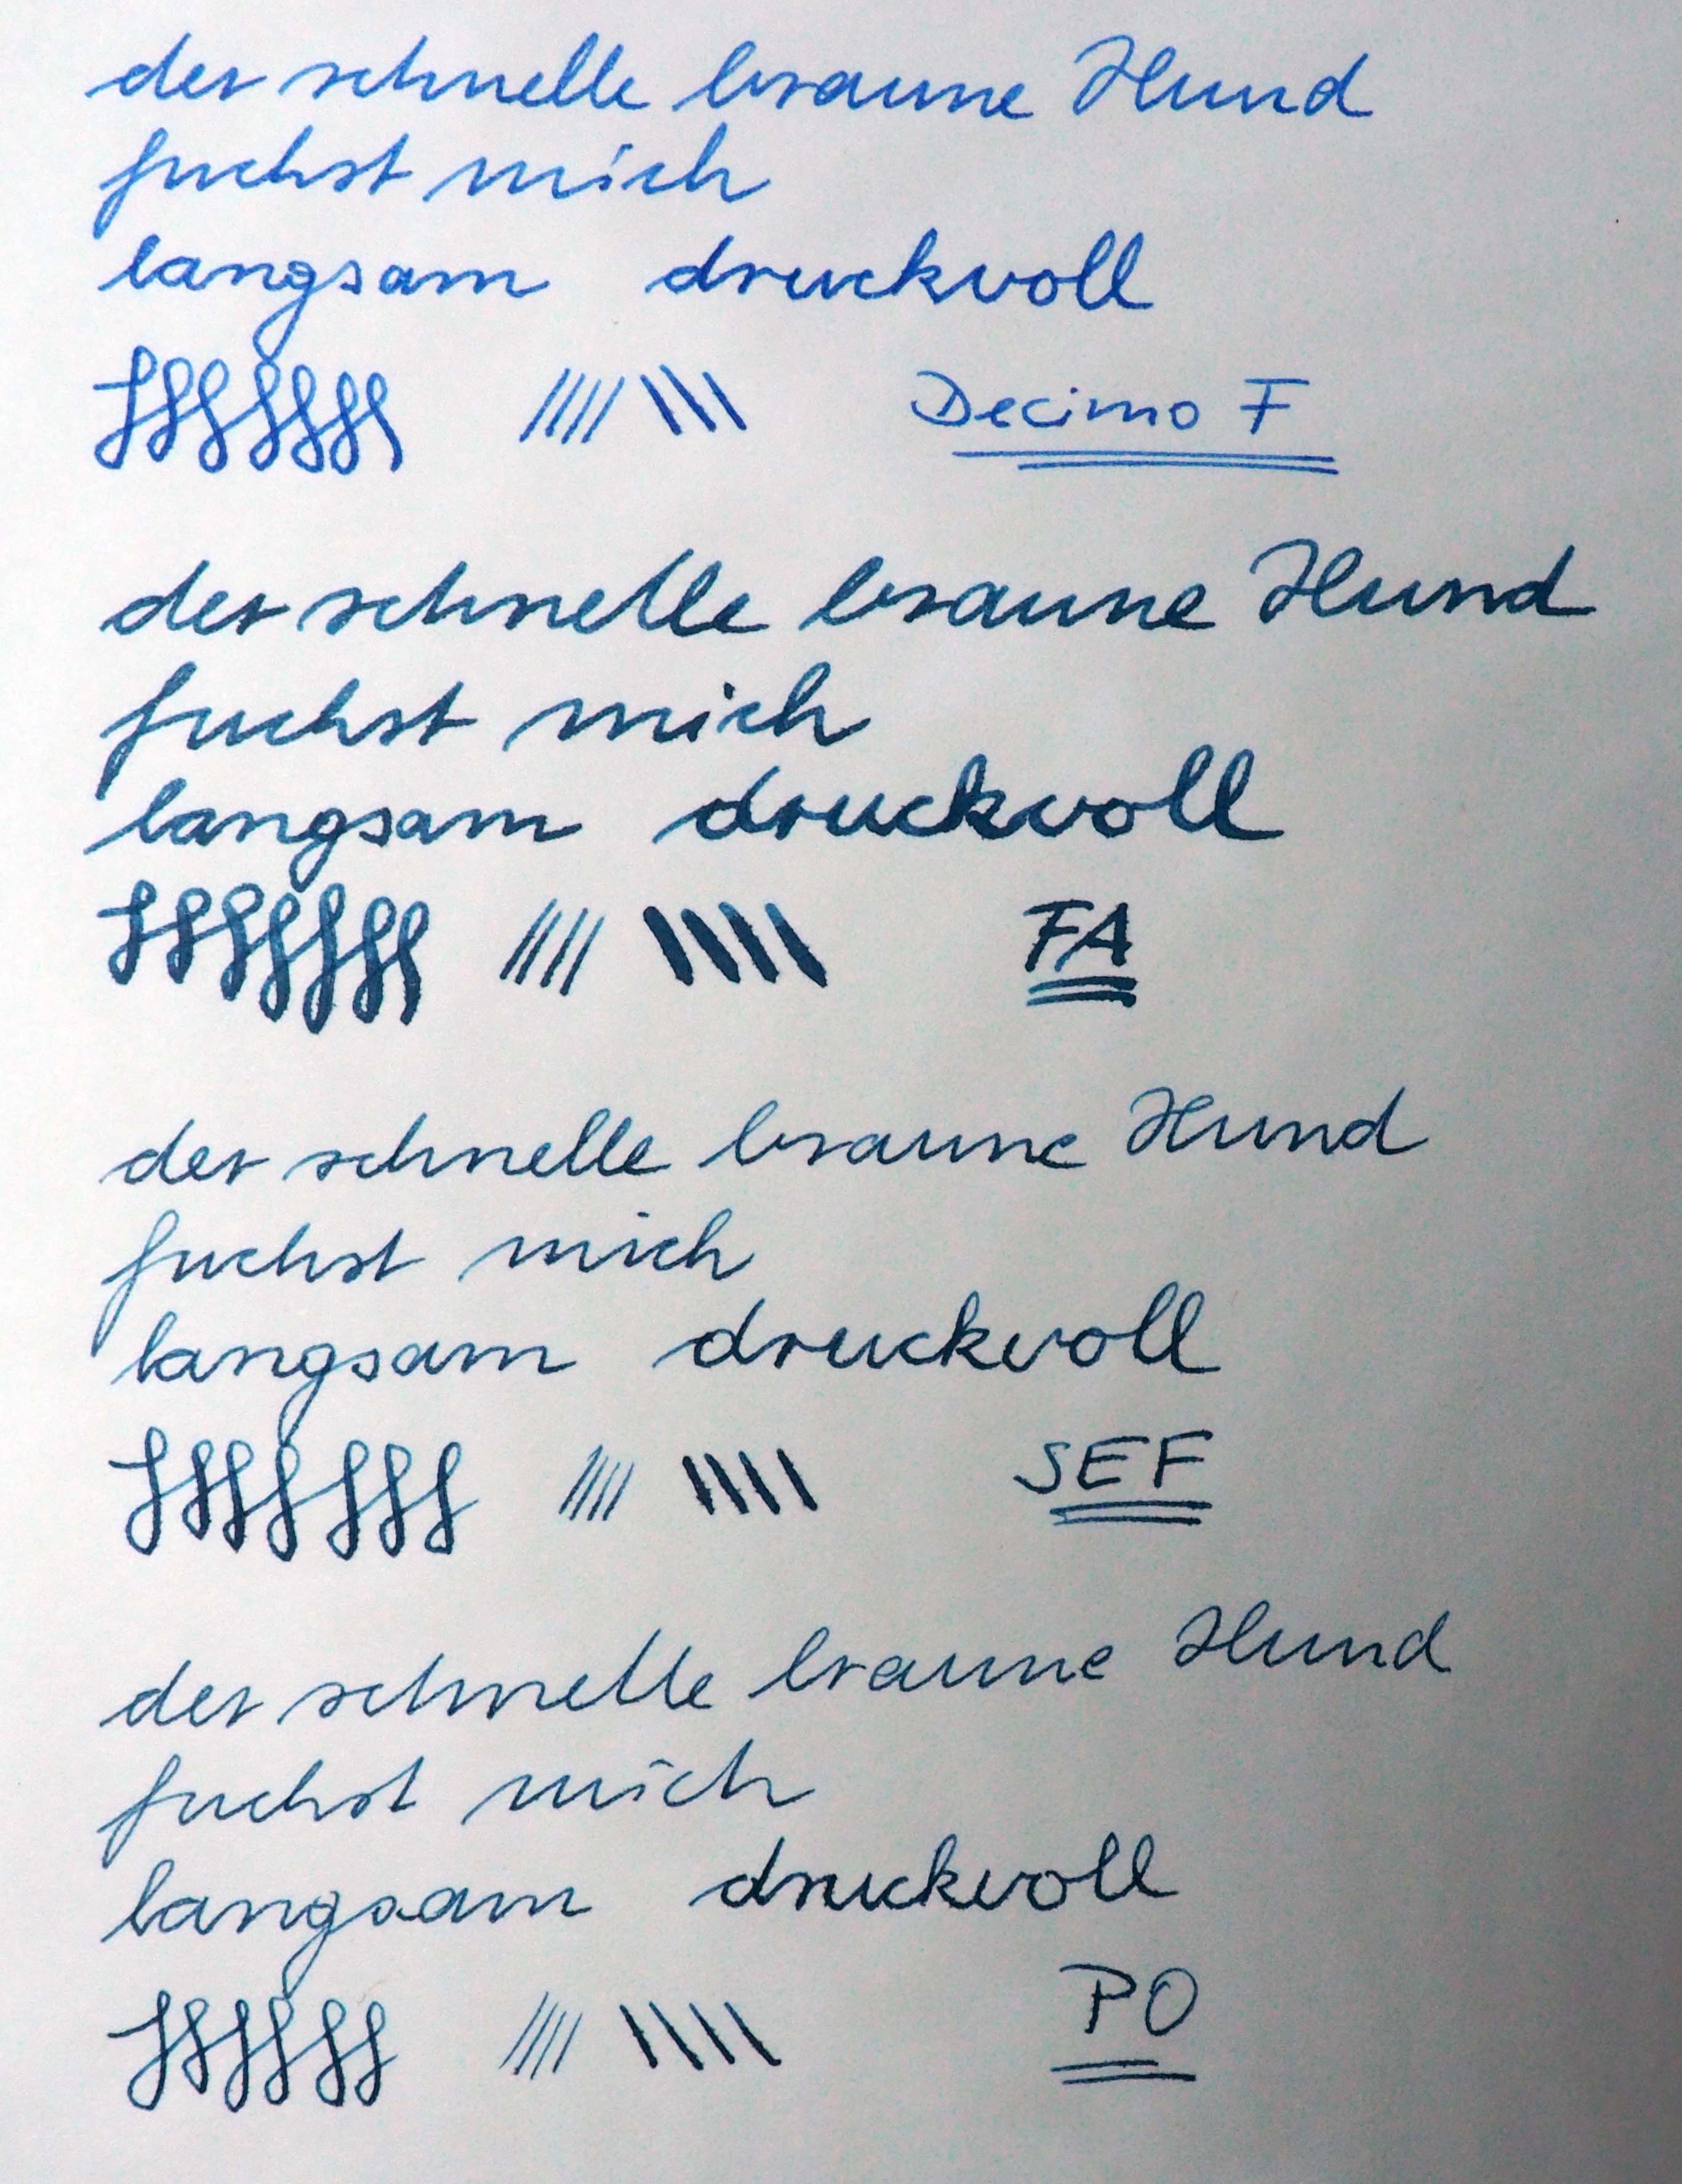 der schnelle braune Hund
fuchst mich
langsam druckvoll
Decimo F
der schnelle braune Hund
fuchst mich
langsam druckvoll
FA
der schnelle braune Hund
fuchst mich
langsam druckvoll
SEF
der schnelle braune Hund
fuchst mich
langsam druckvoll
PO